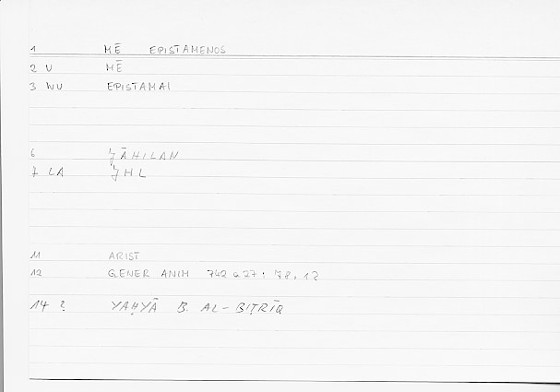 1 MĒ EPISTAMENOS
2 U MĒ
3 WU EPISTAMAI
6 ǦĀHILAN
7 LA ǦHL
11 ARIST
12 GENER ANIM 742 a 27 : 78,17
14 ? YAḤYĀ B. AL-BIṬRĪQ